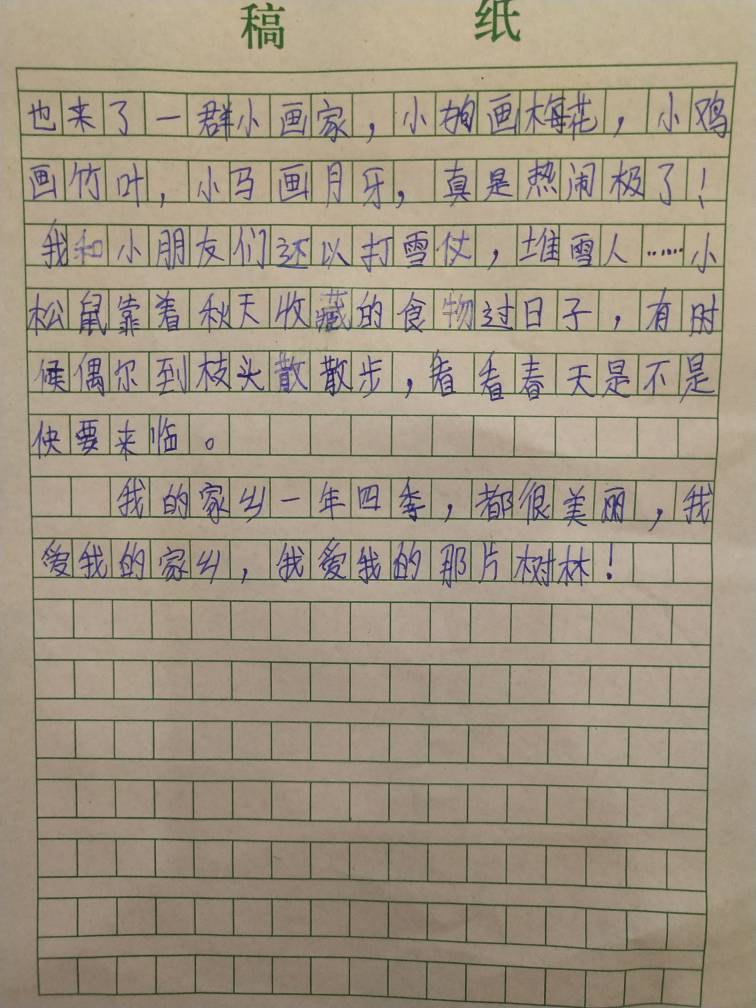 稿 纸
也来了一群小画家，小狗画梅花，小鸡
画竹叶，小马画月牙，真是热闹极了！
我和小朋友们还以打雪仗，堆雪人……小
松鼠靠着秋天收藏的食物过日子，有时
候偶尔到枝头散散步，看看春天是不是
快要来临。
我的家乡一年四季，都很美丽，我
爱我的家乡，我爱我的那片树林！